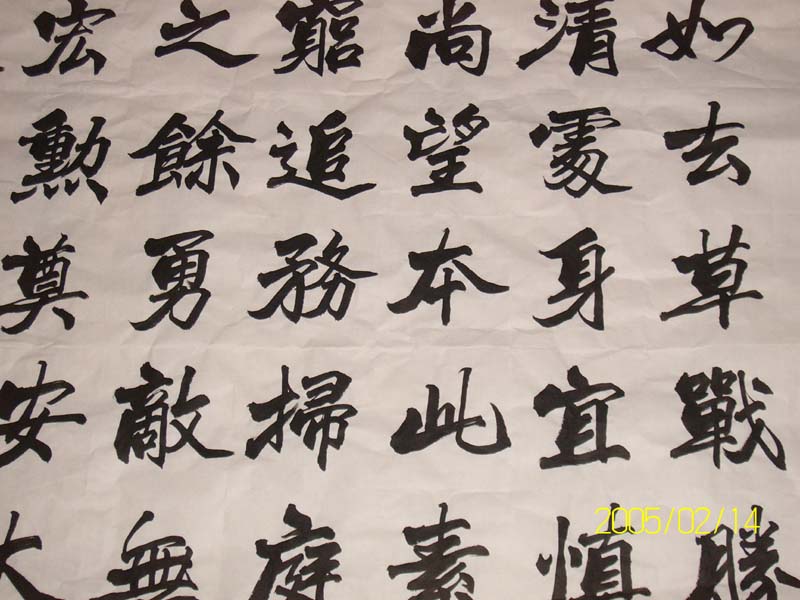 如去草戰勝
清處身宜慎
尚望本此素
窮追務掃庭
之餘勇敵無
宏勳奠安大
2005/02/14